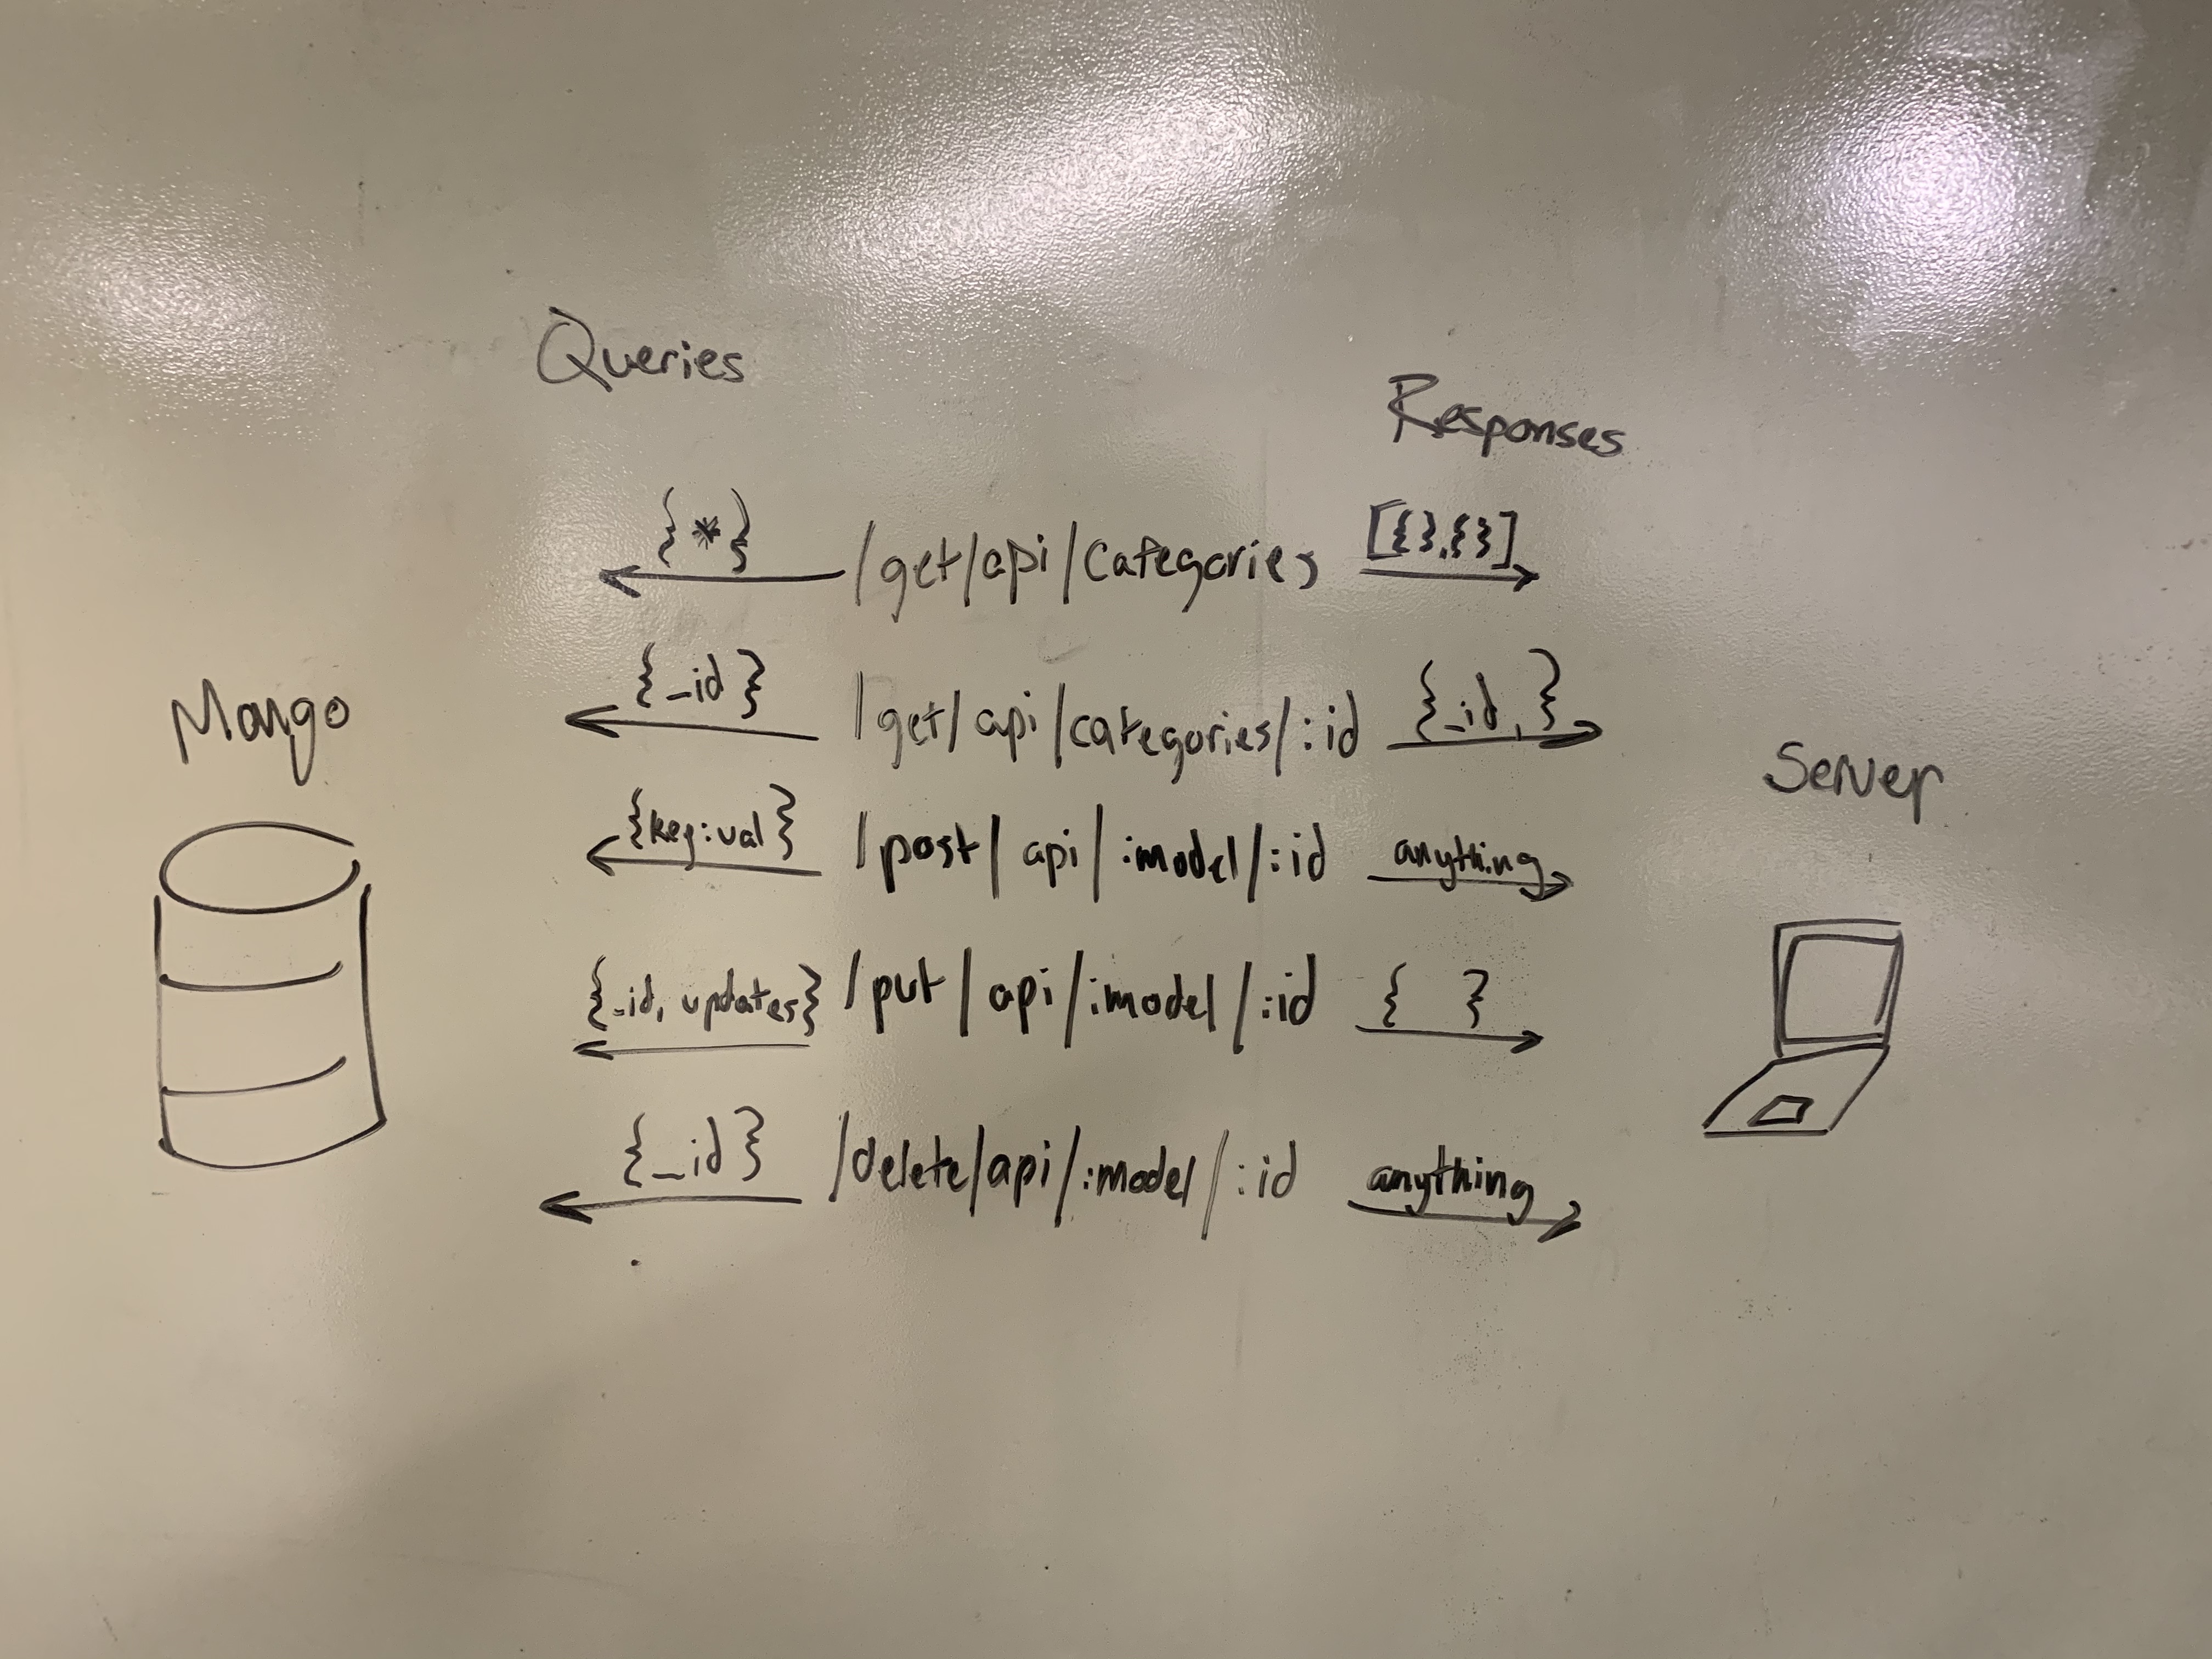 Queries
Responses
{*} /get/api/categories [{},{}]
{_id} /get/api/categories/:id {_id, }
Mongo
Server
{key:val} /post/api/:model/:id anything
{_id, updates} /put/api/:model/:id { }
{_id} /delete/api/:model/:id anything